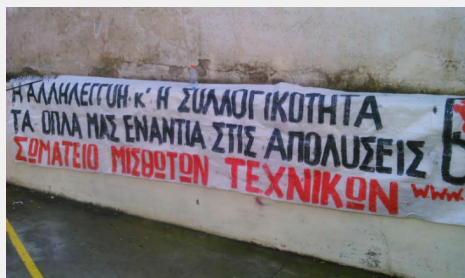 Η ΑΛΛΗΛΕΓΓΥΗ·κ' Η ΣΥΛΛΟΓΙΚΟΤΗΤΑ
ΤΑ ΟΠΛΑ ΜΑΣ ΕΝΑΝΤΙΑ ΣΤΙΣ ΑΠΟΛΥΣΕΙΣ
ΣΩΜΑΤΕΙΟ ΜΙΣΘΩΤΩΝ ΤΕΧΝΙΚΩΝ www.